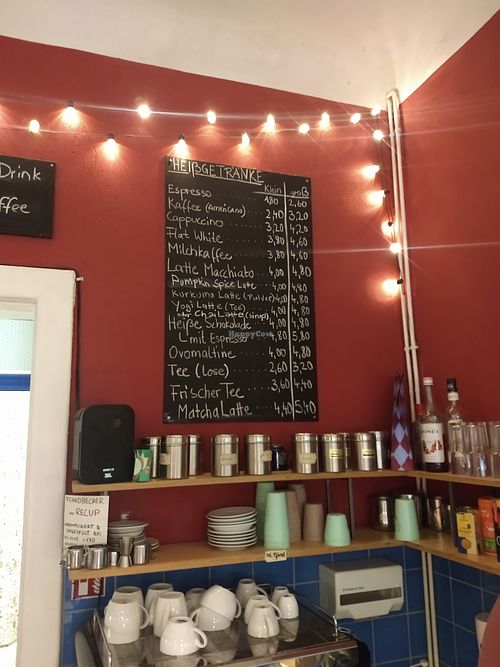 Drink
ffee
HEIẞGETRÄNKE
Klein groß
Espresso 1,80 2,60
Kaffee (Americano) 2,40 3,20
Cappuccino 3,20 4,20
Flat White 3,80 4,60
Milchkaffee 3,80 4,60
Latte Macchiato 4,00 4,80
Pumpkin Spice Late 4,00 4,80
Kurkuma Latte (Pulver) 4,00 4,80
Yogi Latte (Tee) 4,00 4,80
Chai Latte (sirup) 4,00 4,80
Heiße Schokolade 4,00 4,80
mit Espresso 4,80 5,80
Ovomaltine 4,00 4,80
Tee (lose) 2,60 3,20
Frischer Tee 3,60 4,40
Matcha Latte 4,40 5,40
HappyCow
JBL
PFANDBECHER
RECUP
MONIN